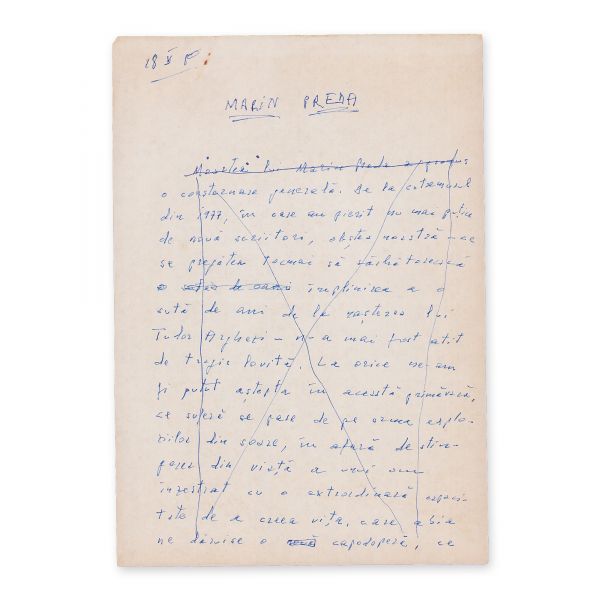 18 X
MARIN PREDA
Moartea lui Marin Preda a produs
o consternare generală. De la cutremurul
din 1977, în care au pierit nu mai puțin
de nouă scriitori, obștea noastră – ce
se pregătea tocmai să sărbătorească
o împlinirea a o
sută de ani de la nașterea lui
Tudor Arghezi – n-a mai fost atît
de tragic lovită. La orice ne-am
fi putut aștepta în această primăvară,
ce suferă se pare de pe urma explo-
ziilor din soare, în afară de stin-
gerea din viață a unui om
înzestrat cu o extraordinară capaci-
tate de a crea vița, care abia
ne dăruise o capodoperă, ce